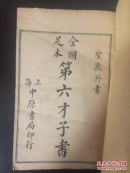 聖歎外書
全圖
足本
第六才子書
上
海
中原書局印行